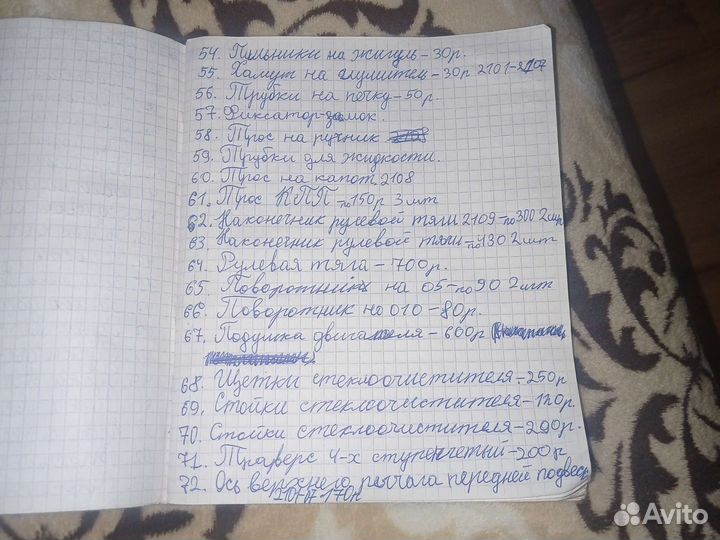 54. Пыльники на жигуль – 30р.
55. Хамут на глушитель – 30р 2101-2107
56. Трубки на печку – 50р.
57. Фиксатор-замок.
58. Трос на ручник
59. Трубки для жидкости.
60. Трос на капот 2108
61. Трос КПП – по 150р 3 шт
62. Наконечник рулевой тяги 2109 – по 300 2 шт
63. Наконечник рулевой тяги – по 130 2 шт
64. Рулевая тяга – 700р.
65. Поворотник на 05 – по 90 2 шт
66. Поворотник на 010 – 80р.
67. Подушка двигателя – 600р
68. Щетки стеклоочистителя – 250р
69. Стойки стеклоочистителя – 120р.
70. Стойки стеклоочистителя – 200р.
71. Траверс 4-х ступенчатый – 200р
72. Ось верхнего рычага передней подвес
2101-07 170р
Avito